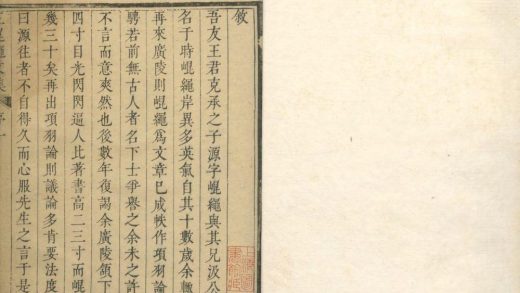 敘
吾友王君克承之子源字崐繩與其兄汲公
名于時崐繩岸異多英氣自其十數歲余輙
再來廣陵則崐繩爲文章已成軼作項羽論
騁若前無古人者名下士爭舉之余未之許
不言而意爽然也後數年復謁余廣陵頷下
四寸目光閃閃逼人比著書高二三寸而崐
幾三十矣再出項羽論則議論多肯要法度
曰源往者不自得久而心服先生之言于是